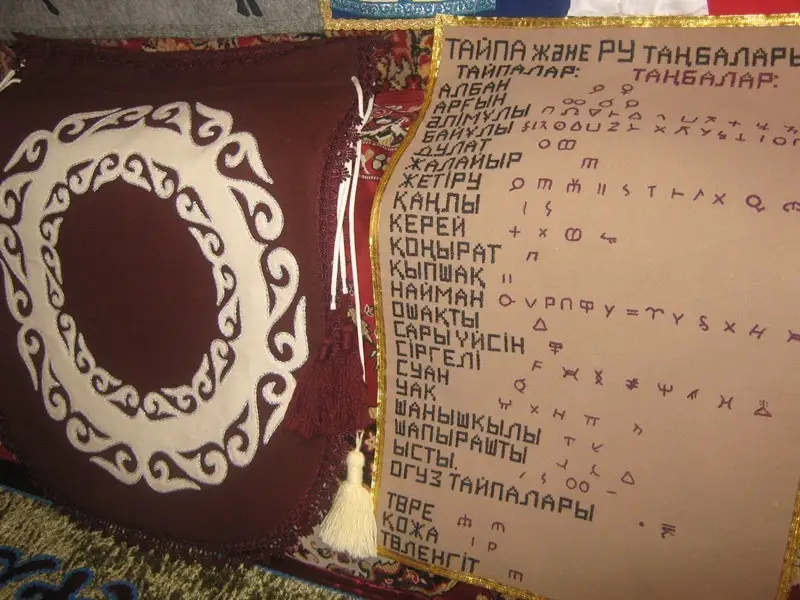 ТАЙПА және РУ ТАҢБАЛАРЫ
ТАЙПАЛАР: ТАҢБАЛАР:
АЛБАН
АРҒЫН
ӘЛІМҰЛЫ
БАЙҰЛЫ
ДУЛАТ
ЖАЛАЙЫР
ЖЕТІРУ
ҚАҢЛЫ
КЕРЕЙ
ҚОҢЫРАТ
ҚЫПШАҚ
НАЙМАН
ОШАҚТЫ
САРЫҮЙСІН
СІРГЕЛІ
СУАН
УАК
ШАНЫШКЫЛЫ
ШАПЫРАШТЫ
ЫСТЫ.
ОГУЗ ТАЙПАЛАРЫ
ТӨРЕ
ҚОЖА
ТӨЛЕНГІТ